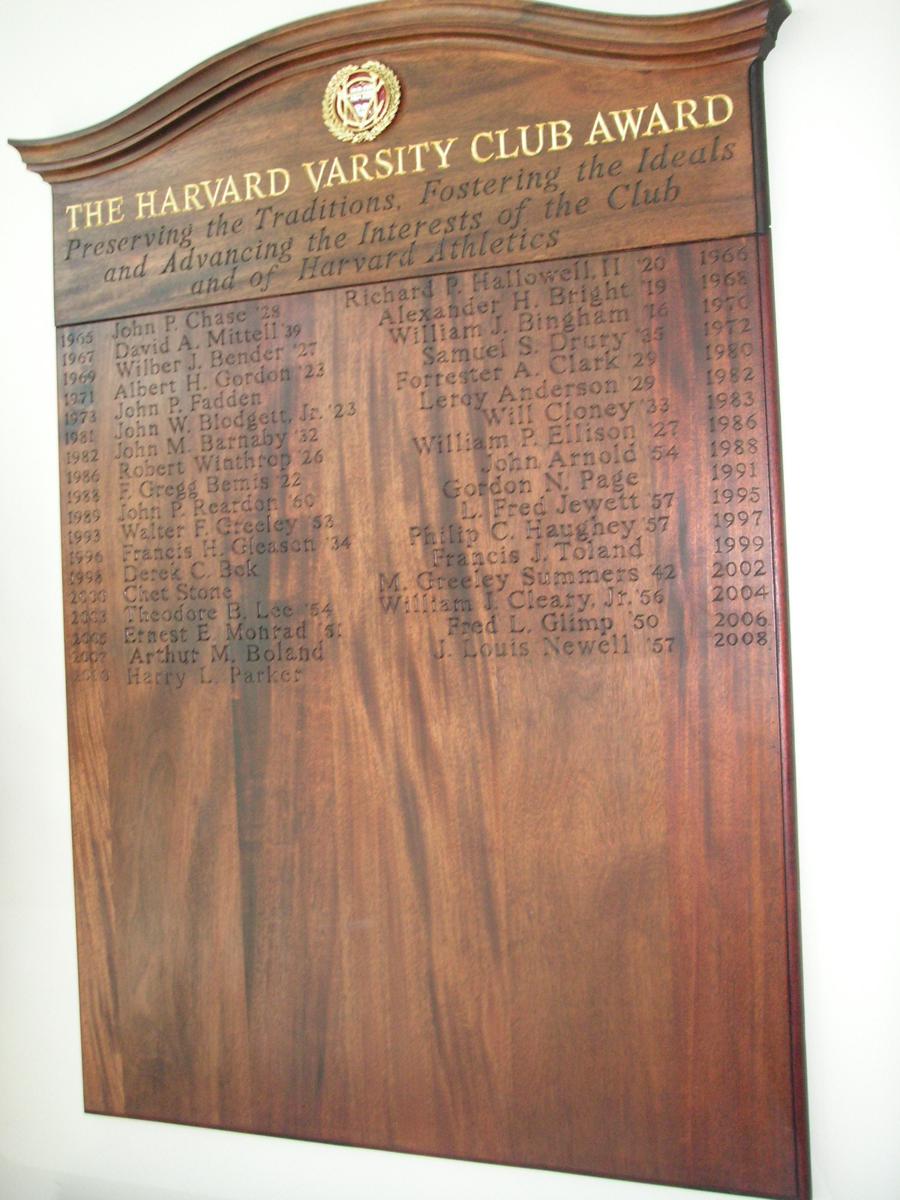 THE HARVARD VARSITY CLUB AWARD
Preserving the Traditions, Fostering the Ideals
and Advancing the Interests of the Club
and of Harvard Athletics
1965 John P. Chase '28
1967 David A. Mittell '39
1969 Wilber J. Bender '27
1971 Albert H. Gordon '23
1973 John P. Fadden
1981 John W. Blodgett, Jr. '23
1982 John M. Barnaby '32
1986 Robert Winthrop '26
1988 F. Gregg Bemis '22
1989 John P. Reardon '60
1993 Walter F. Greeley '53
1996 Francis H. Gleason '34
1998 Derek C. Bok
2000 Chet Stone
2003 Theodore B. Lee '54
2005 Ernest E. Monrad '51
2007 Arthur M. Boland
Harry L. Parker
Richard P. Hallowell, II '20 1966
Alexander H. Bright '19 1968
William J. Bingham '16 1970
Samuel S. Drury '35 1972
Forrester A. Clark '29 1980
Leroy Anderson '29 1982
Will Cloney '33 1983
William P. Ellison '27 1986
John Arnold '54 1988
Gordon N. Page 1991
L. Fred Jewett '57 1995
Philip C. Haughey '57 1997
Francis J. Toland 1999
M. Greeley Summers '42 2002
William J. Cleary, Jr. '56 2004
Fred L. Glimp '50 2006
J. Louis Newell '57 2008